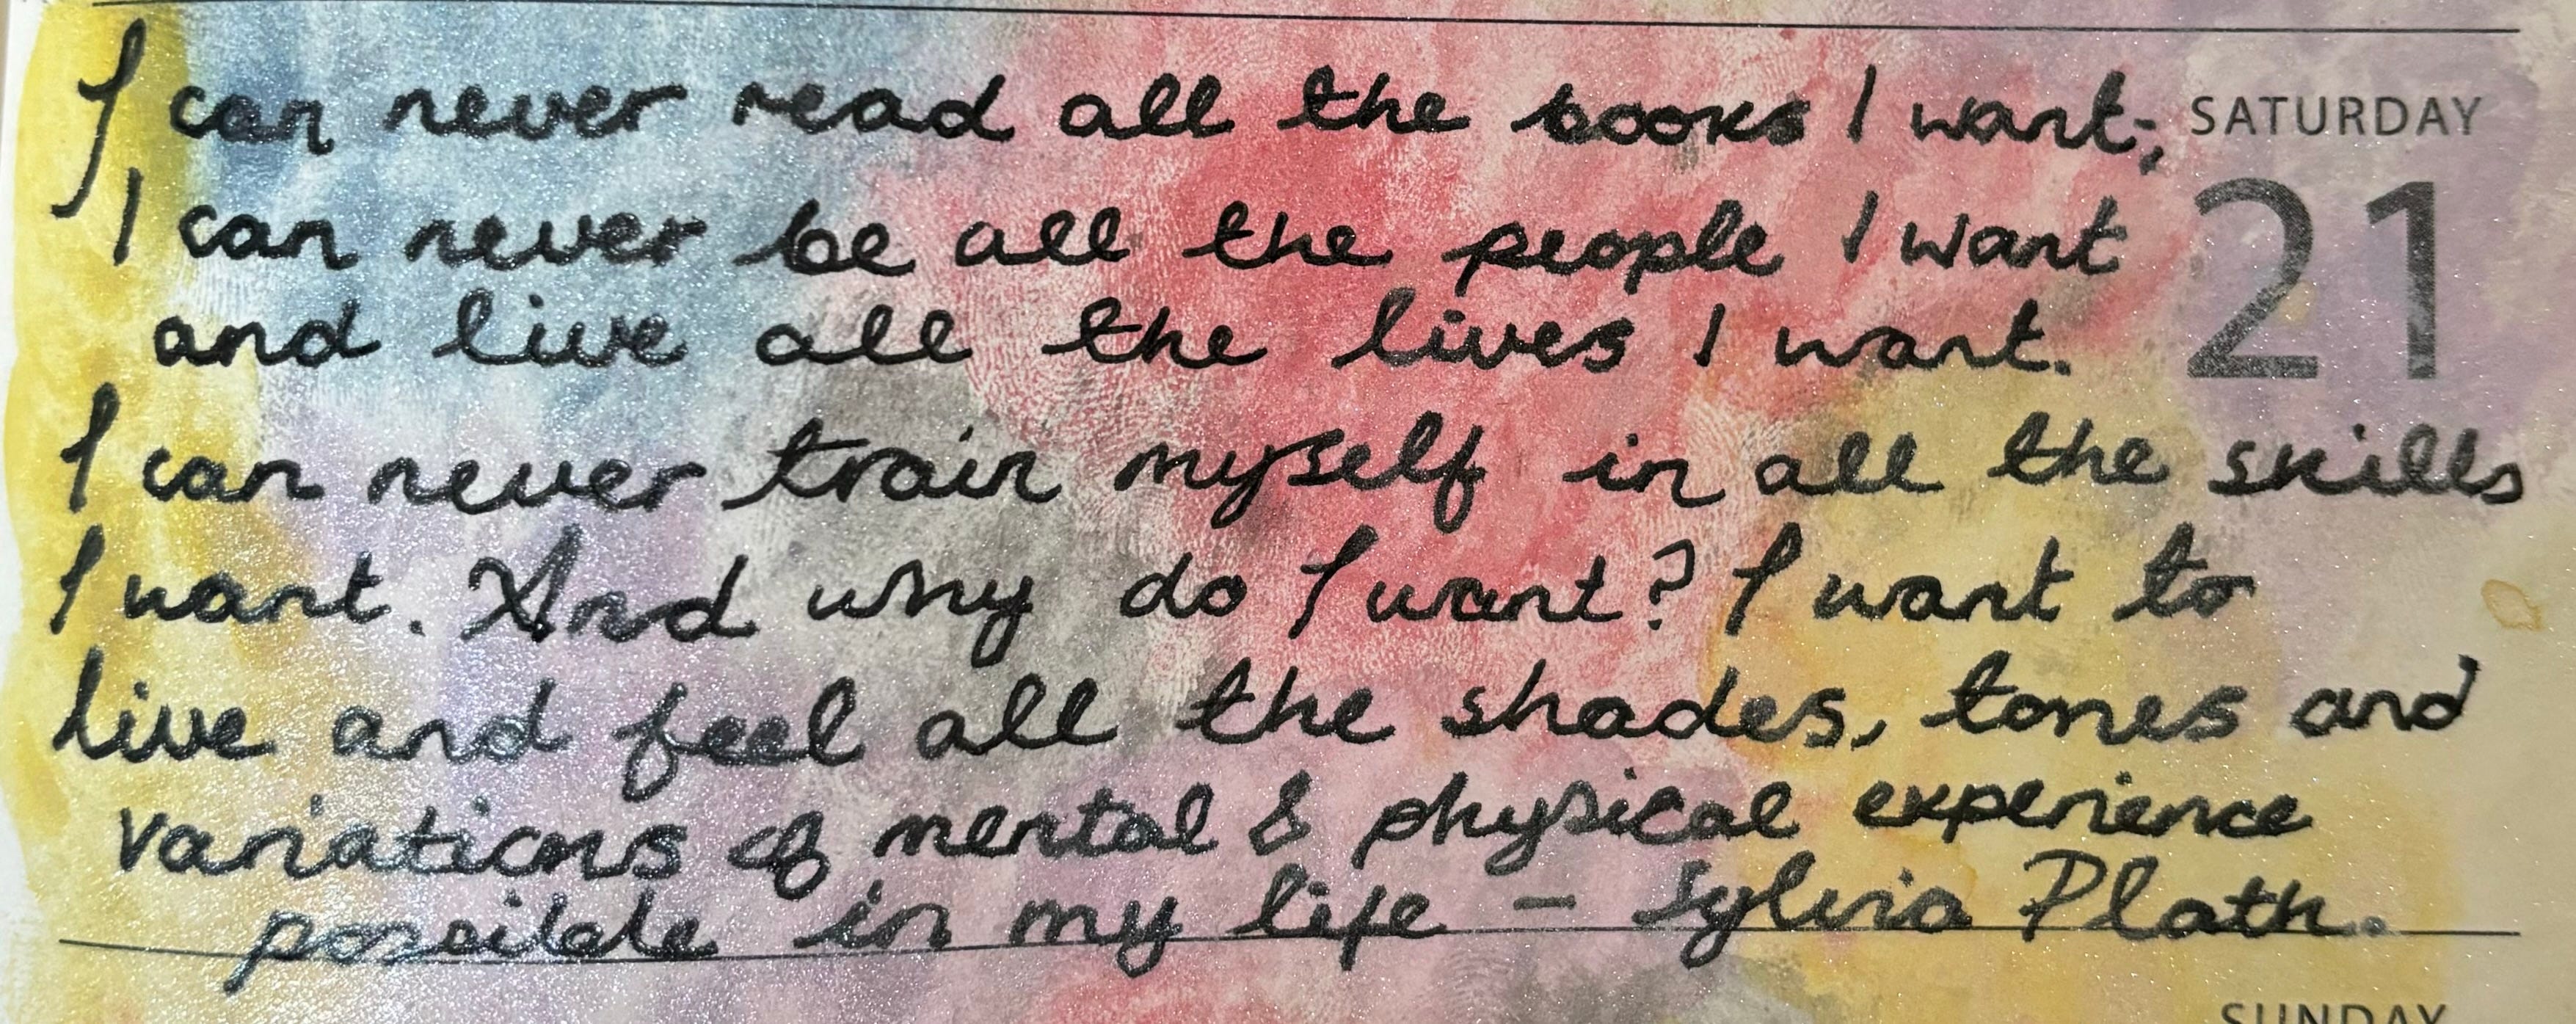 I can never read all the books I want; SATURDAY
I can never be all the people I want 21
and live all the lives I want.
I can never train myself in all the skills
I want. And why do I want? I want to
live and feel all the shades, tones and
variations of mental & physical experience
possible in my life - Sylvia Plath.
SUNDAY